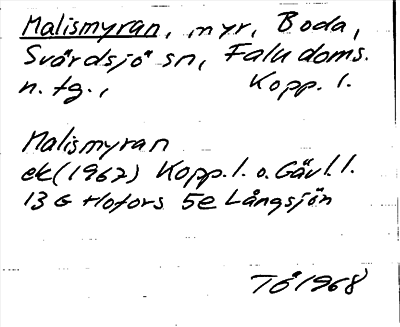 Malismyran, myr, Boda,
Svärdsjö sn, Falu doms.
n. tg., Kopp. l.
Malismyran
ek (1962) Kopp. l. o. Gävl. l.
13 G Hofors 5e Långsjön
TÅ 1968